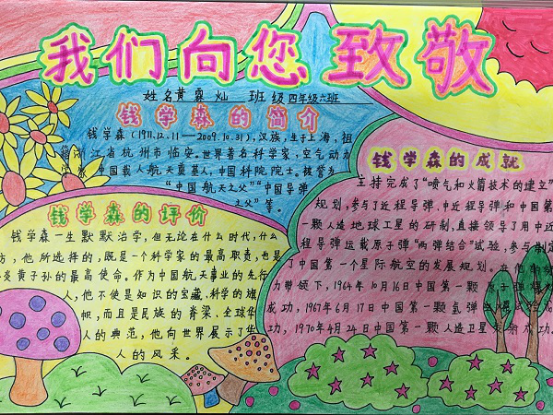 我们向您致敬
姓名黄霖灿 班级四年级六班
钱学森的简介
钱学森(1911.12.11—2009.10.31),汉族,生于上海,祖
籍浙江省杭州市临安。世界著名科学家,空气动力
家,中国载人航天奠基人,中国科院院士,被誉为
“中国航天之父”“中国导弹
之父”等。
钱学森的评价
钱学森一生默默治学,但无论在什么时代,什么
方,他所选择的,既是一个科学家的最高职责,也是
炎黄子孙的最高使命。作为中国航天事业的先行
人,他不使是知识的宝藏、科学的旗
帜,而且是民族的脊梁、全球华
人的典范,他向世界展示了华
人的风采。
钱学森的成就
主持完成了“喷气和火箭技术的建立”
规划,参与了近程导弹、中近程导弹和中国第
一颗人造地球卫星的研制,直接领导了用中近
程导弹运载原子弹“两弹结合”试验,参与制定
了中国第一个星际航空的发展规划。在他
力带领下,1964年10月16日中国第一颗原子弹爆炸
成功,1967年6月17日中国第一颗氢弹
成功,1970年4月24日中国第一颗人造卫星发射成功。